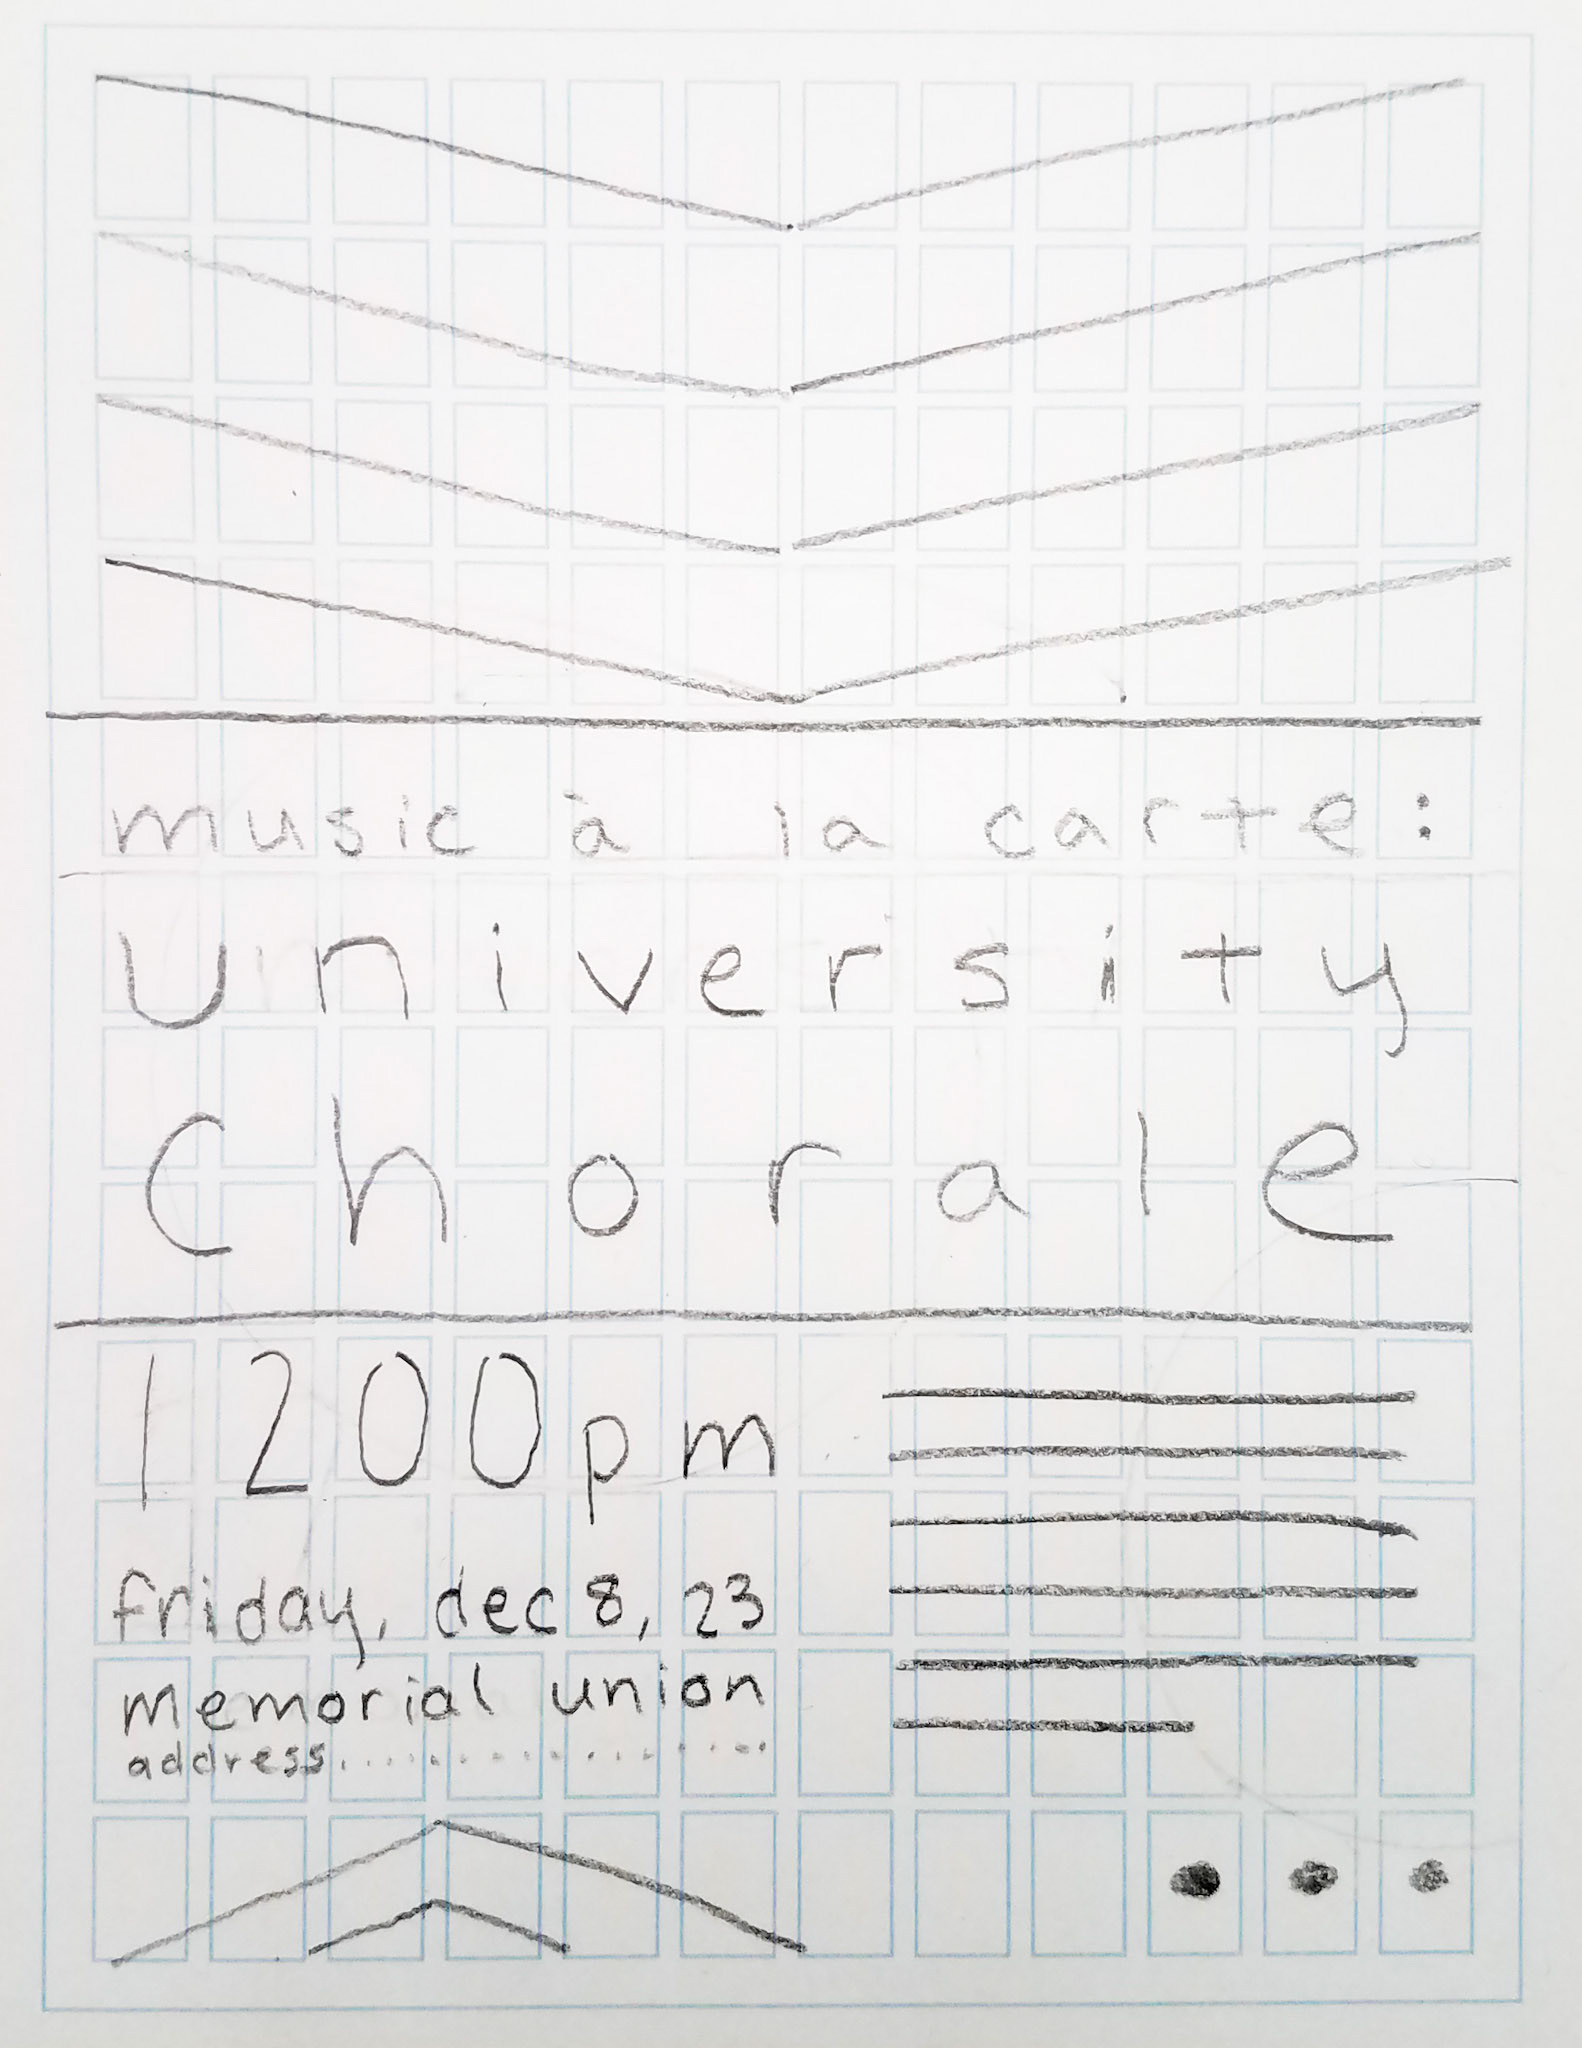 music à la carte:
university
chorale
1200pm
friday, dec 8, 23
memorial union
address..................